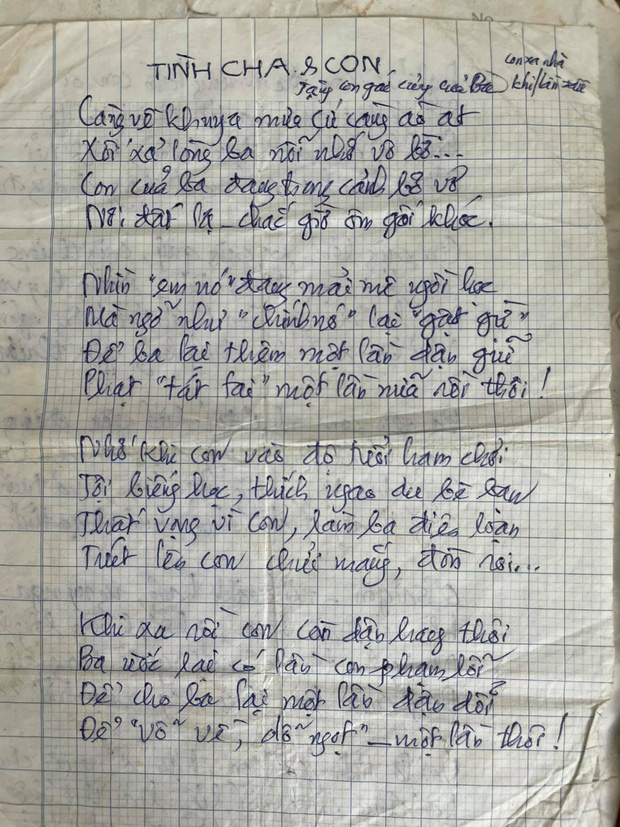 TÌNH CHA & CON
Tặng con gái cưng của Ba
con xa nhà
khi lần
Càng về khuya mưa cứ càng ào ạt
Xối xả lòng ba nỗi nhớ vô bờ...
Con của ba đang trong cảnh bơ vơ
Nơi đất lạ - chắc giờ ôm gối khóc.
Nhìn "em nó" đang mải mê ngồi học
Mà ngỡ như "chính nó" lại "gật gù"
Để ba lại thêm một lần giận giữ
Phạt "tát tai" một lần nữa rồi thôi!
Nhớ khi con vào độ tuổi ham chơi
Tội biếng học, thích ngao du bè bạn
Thất vọng vì con, làm ba điên loạn
Trút lên con chửi mắng, đòn roi...
Khi xa rồi con còn đậm trong thôi
Ba ước lại có lần con phạm lỗi
Để cho ba lại một lần giận dỗi
Để "vỗ về, dỗ ngọt" - một lần thôi!